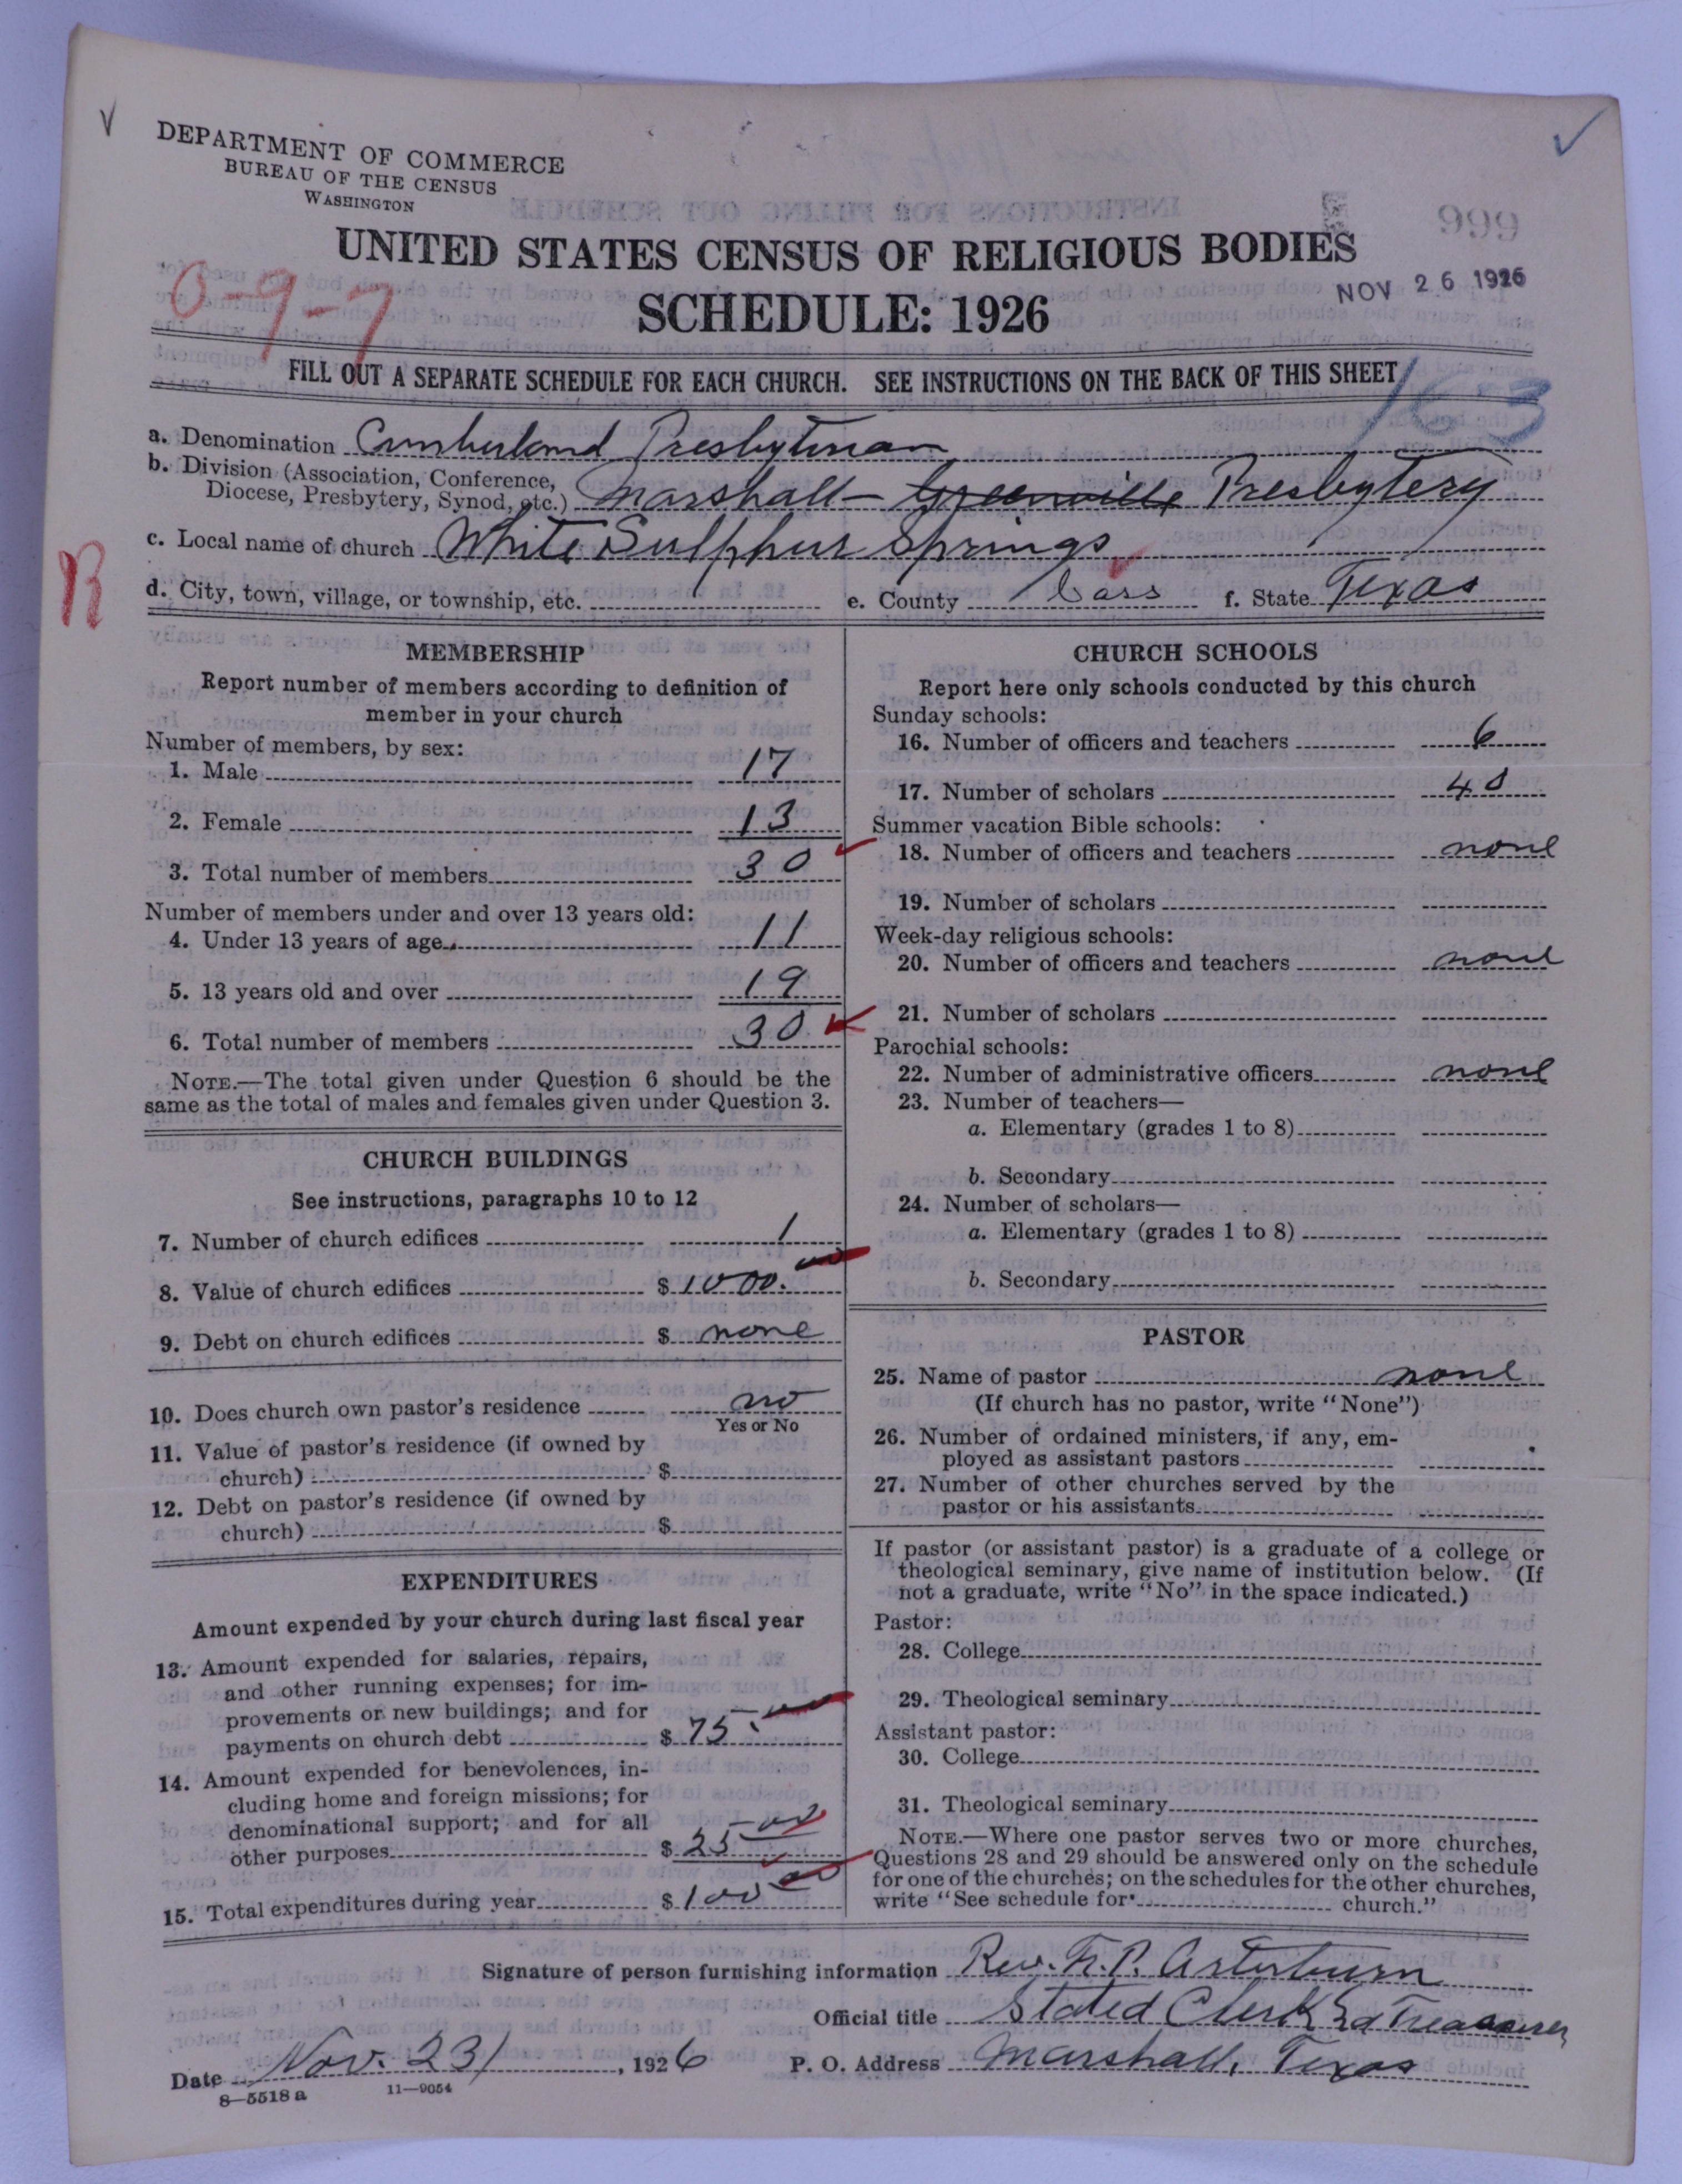 DEPARTMENT OF COMMERCE
BUREAU OF THE CENSUS
WASHINGTON
UNITED STATES CENSUS OF RELIGIOUS BODIES
SCHEDULE: 1926
NOV 26 1926
0-9-7
FILL OUT A SEPARATE SCHEDULE FOR EACH CHURCH. SEE INSTRUCTIONS ON THE BACK OF THIS SHEET
163
a. Denomination Cumberland Presbyterian
b. Division (Association, Conference,
Diocese, Presbytery, Synod, etc.) Marshall - Greenville Presbytery
c. Local name of church White Sulphur Springs
R
d. City, town, village, or township, etc. e. County Cass f. State Texas
MEMBERSHIP
Report number of members according to definition of
member in your church
Number of members, by sex:
1. Male 17
2. Female 13
3. Total number of members 30
Number of members under and over 13 years old:
4. Under 13 years of age 11
5. 13 years old and over 19
6. Total number of members 30
NOTE.—The total given under Question 6 should be the
same as the total of males and females given under Question 3.
CHURCH BUILDINGS
See instructions, paragraphs 10 to 12
7. Number of church edifices 1
8. Value of church edifices $ 1000.00
9. Debt on church edifices $ none
10. Does church own pastor's residence no
Yes or No
11. Value of pastor's residence (if owned by
church) $
12. Debt on pastor's residence (if owned by
church) $
EXPENDITURES
Amount expended by your church during last fiscal year
13. Amount expended for salaries, repairs,
and other running expenses; for im-
provements or new buildings; and for
payments on church debt $ 75.00
14. Amount expended for benevolences, in-
cluding home and foreign missions; for
denominational support; and for all
other purposes $ 25.00
15. Total expenditures during year $ 100.00
CHURCH SCHOOLS
Report here only schools conducted by this church
Sunday schools:
16. Number of officers and teachers 6
17. Number of scholars 40
Summer vacation Bible schools:
18. Number of officers and teachers none
19. Number of scholars
Week-day religious schools:
20. Number of officers and teachers none
21. Number of scholars
Parochial schools:
22. Number of administrative officers none
23. Number of teachers—
a. Elementary (grades 1 to 8)
b. Secondary
24. Number of scholars—
a. Elementary (grades 1 to 8)
b. Secondary
PASTOR
25. Name of pastor none
(If church has no pastor, write "None")
26. Number of ordained ministers, if any, em-
ployed as assistant pastors
27. Number of other churches served by the
pastor or his assistants
If pastor (or assistant pastor) is a graduate of a college or
theological seminary, give name of institution below. (If
not a graduate, write "No" in the space indicated.)
Pastor:
28. College
29. Theological seminary
Assistant pastor:
30. College
31. Theological seminary
NOTE.—Where one pastor serves two or more churches,
Questions 28 and 29 should be answered only on the schedule
for one of the churches; on the schedules for the other churches,
write "See schedule for church."
Signature of person furnishing information Rev. F. P. Arterburn
Official title Stated Clerk & Treasurer
Date Nov. 23, 1926 P. O. Address Marshall, Texas
8—5518 a 11—9054